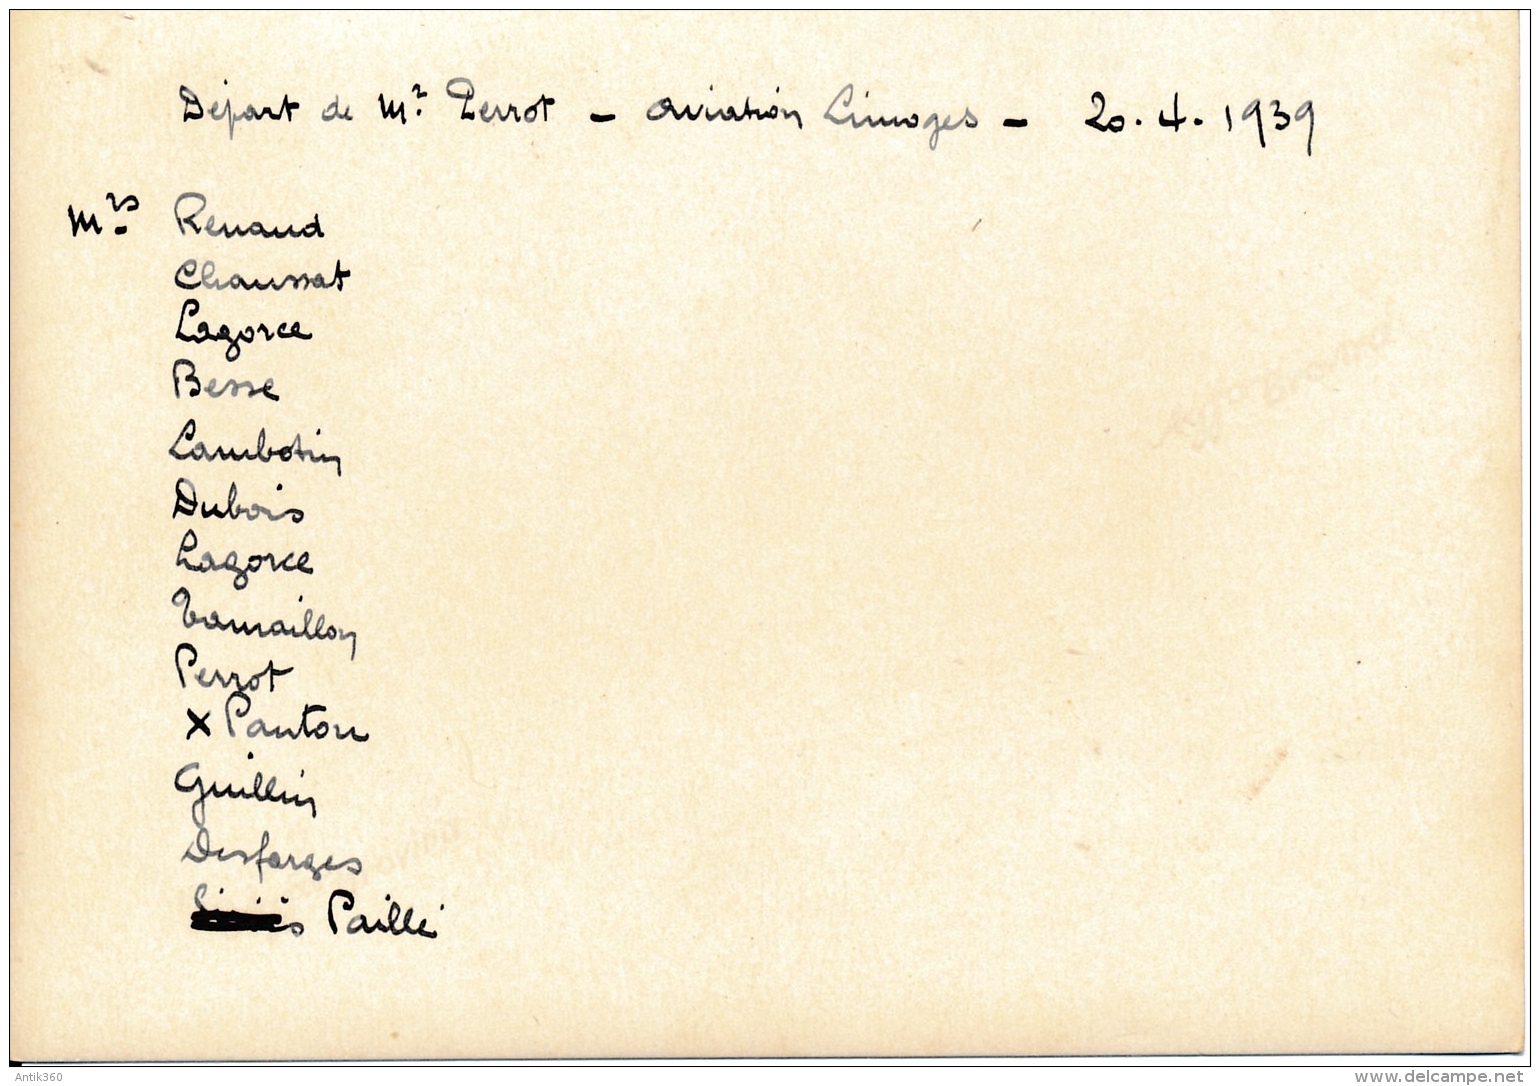 Départ de Mr. Perrot - Aviation Limoges - 20.4.1939
Mrs. Renaud
Chaussat
Lagorce
Besse
Lambotin
Dubois
Lagorce
Tamaillon
Perrot
x Pantou
Guillin
Desfarges
Paillé
Antik360
www.delcampe.net